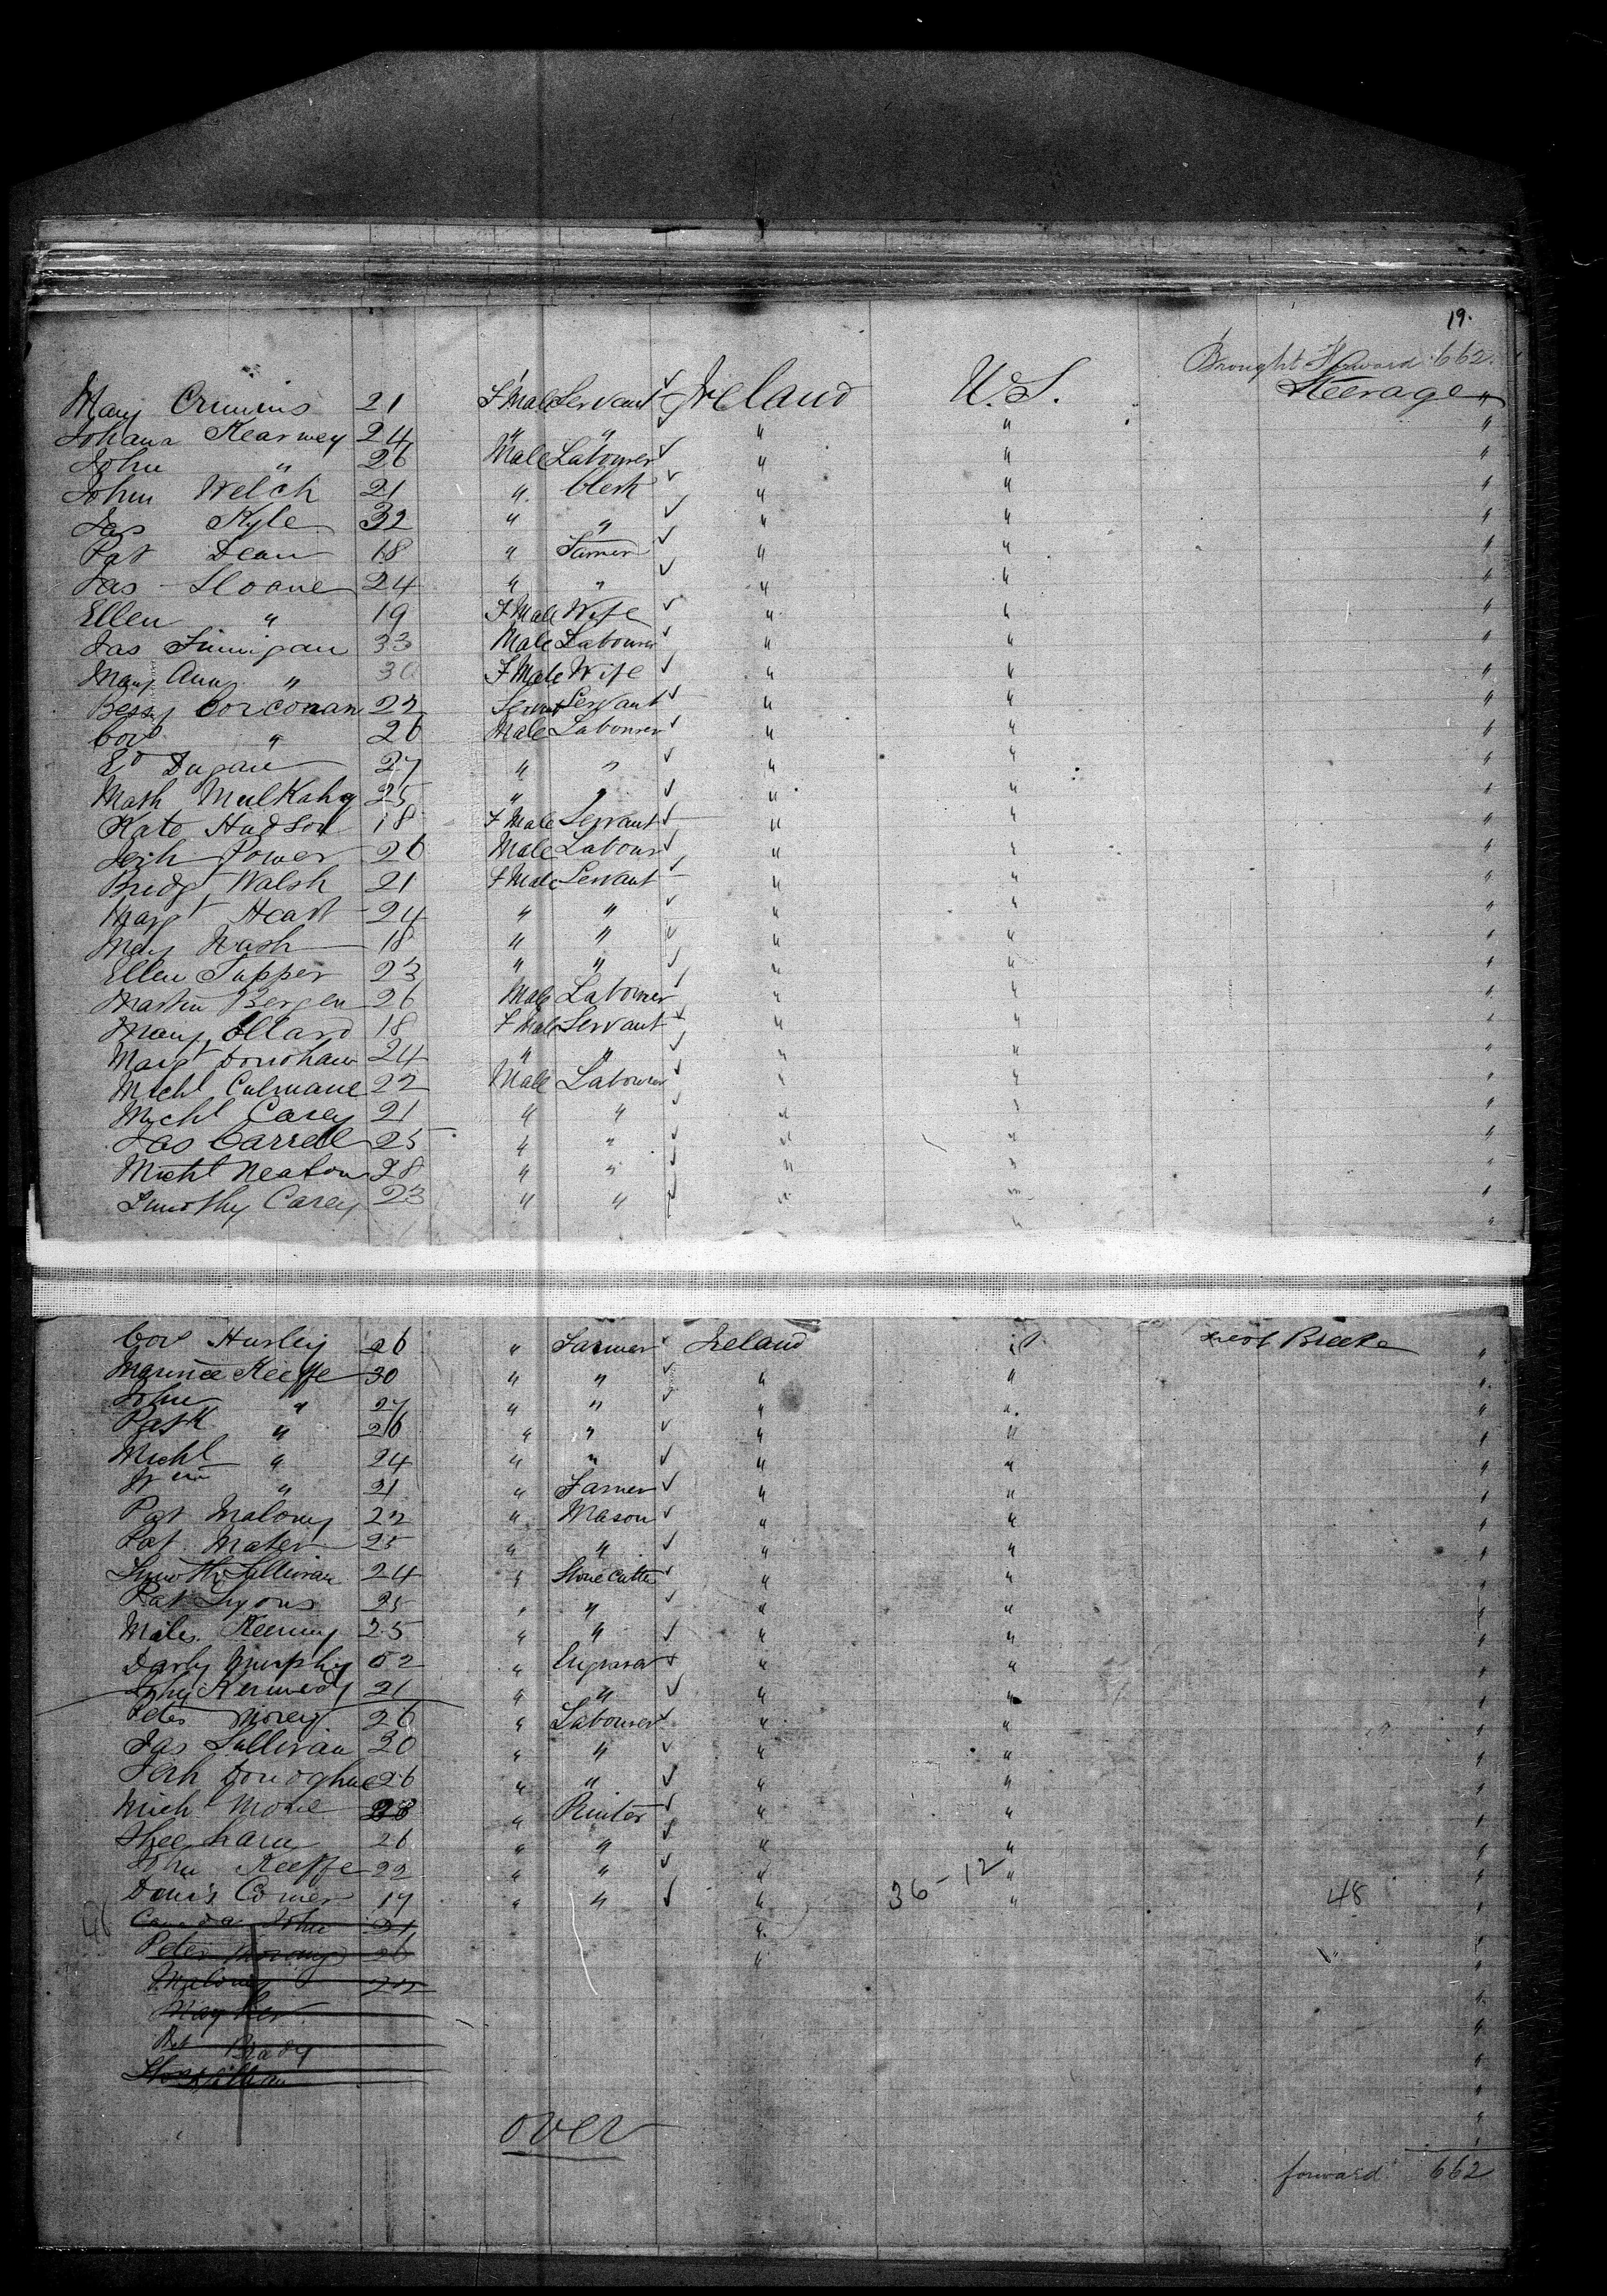 19.
Brought Forward 662
Mary Crimins 21 F Male Servant Ireland U.S. Steerage "
Johana Kearney 24 " " " " "
John " 26 Male Labourer " " "
John Welch 21 " Clerk " " "
Jas Kyle 32 " " " " "
Pat Dean 18 " Farmer " " "
Jas Sloane 24 " " " " "
Ellen " 19 F Male Wife " " "
Jas Finnigan 33 Male Labourer " " "
Mary Ann " 30 F Male Wife " " "
Bessy Corconan 22 Servant " " "
Cors " 26 Male Labourer " " "
Ed Dugan 27 " " " " "
Math Mulkahy 25 " " " " "
Kate Hudson 18 F Male Servant " " "
Jerh Power 26 Male Labour " " "
Bridgt Walsh 21 F Male Servant " " "
Margt Heart 24 " " " " "
Mary 18 " " " " "
Ellen Tupper 23 " " " " "
Martin Bergen 26 Male Labourer " " "
Mary Ellard 18 F Male Servant " " "
Margt Donohaue 24 " " " " "
Michl Culinane 22 Male Labourer " " "
Michl Casey 21 " " " " "
Jas Carrell 25 " " " " "
Michl Neaton 28 " " " " "
Timothy Casey 23 " " " " "
Cors Hurley 26 " Farmer Ireland " "
Maurice Keeffe 30 " " " " "
John " 27 " " " " "
Patk " 26 " " " " "
Michl " 24 " " " " "
Wm " 21 " Farmer " " "
Pat Malony 22 " Mason " " "
Pat Mater 25 " " " " "
Timoth Sullivan 24 " Stone Cutter " " "
Pat Lyons 25 " " " " "
Miles Keeniny 25 " " " " "
Darby Murphy 52 " Engraver " " "
John Kennedy 21 " " " " "
Peter Morey 26 " Labourer " " "
Jas Sullivan 30 " " " " "
Jerh Donoghue 26 " " " " "
Mich Mone 28 " Printer " " "
26 " " " " "
John Keeffe 22 " " " " "
Denis Comer 19 " " " 36 - 12 " 48
46
John 21 "
Peter 26 "
Maloney 22
Brady
over
forward 662